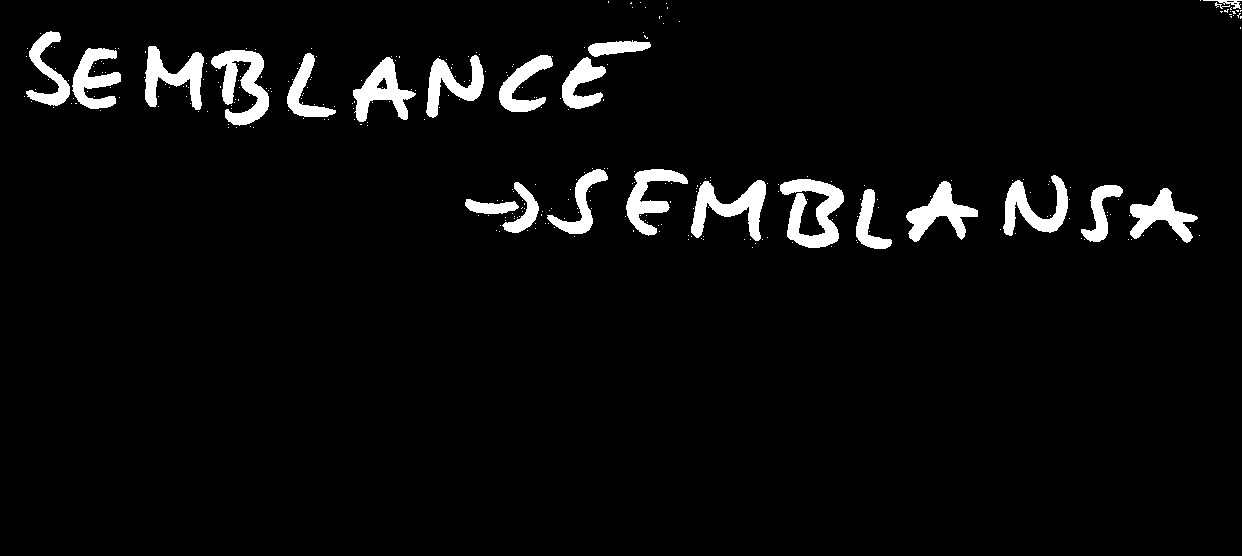 SEMBLANCE
→SEMBLANSA